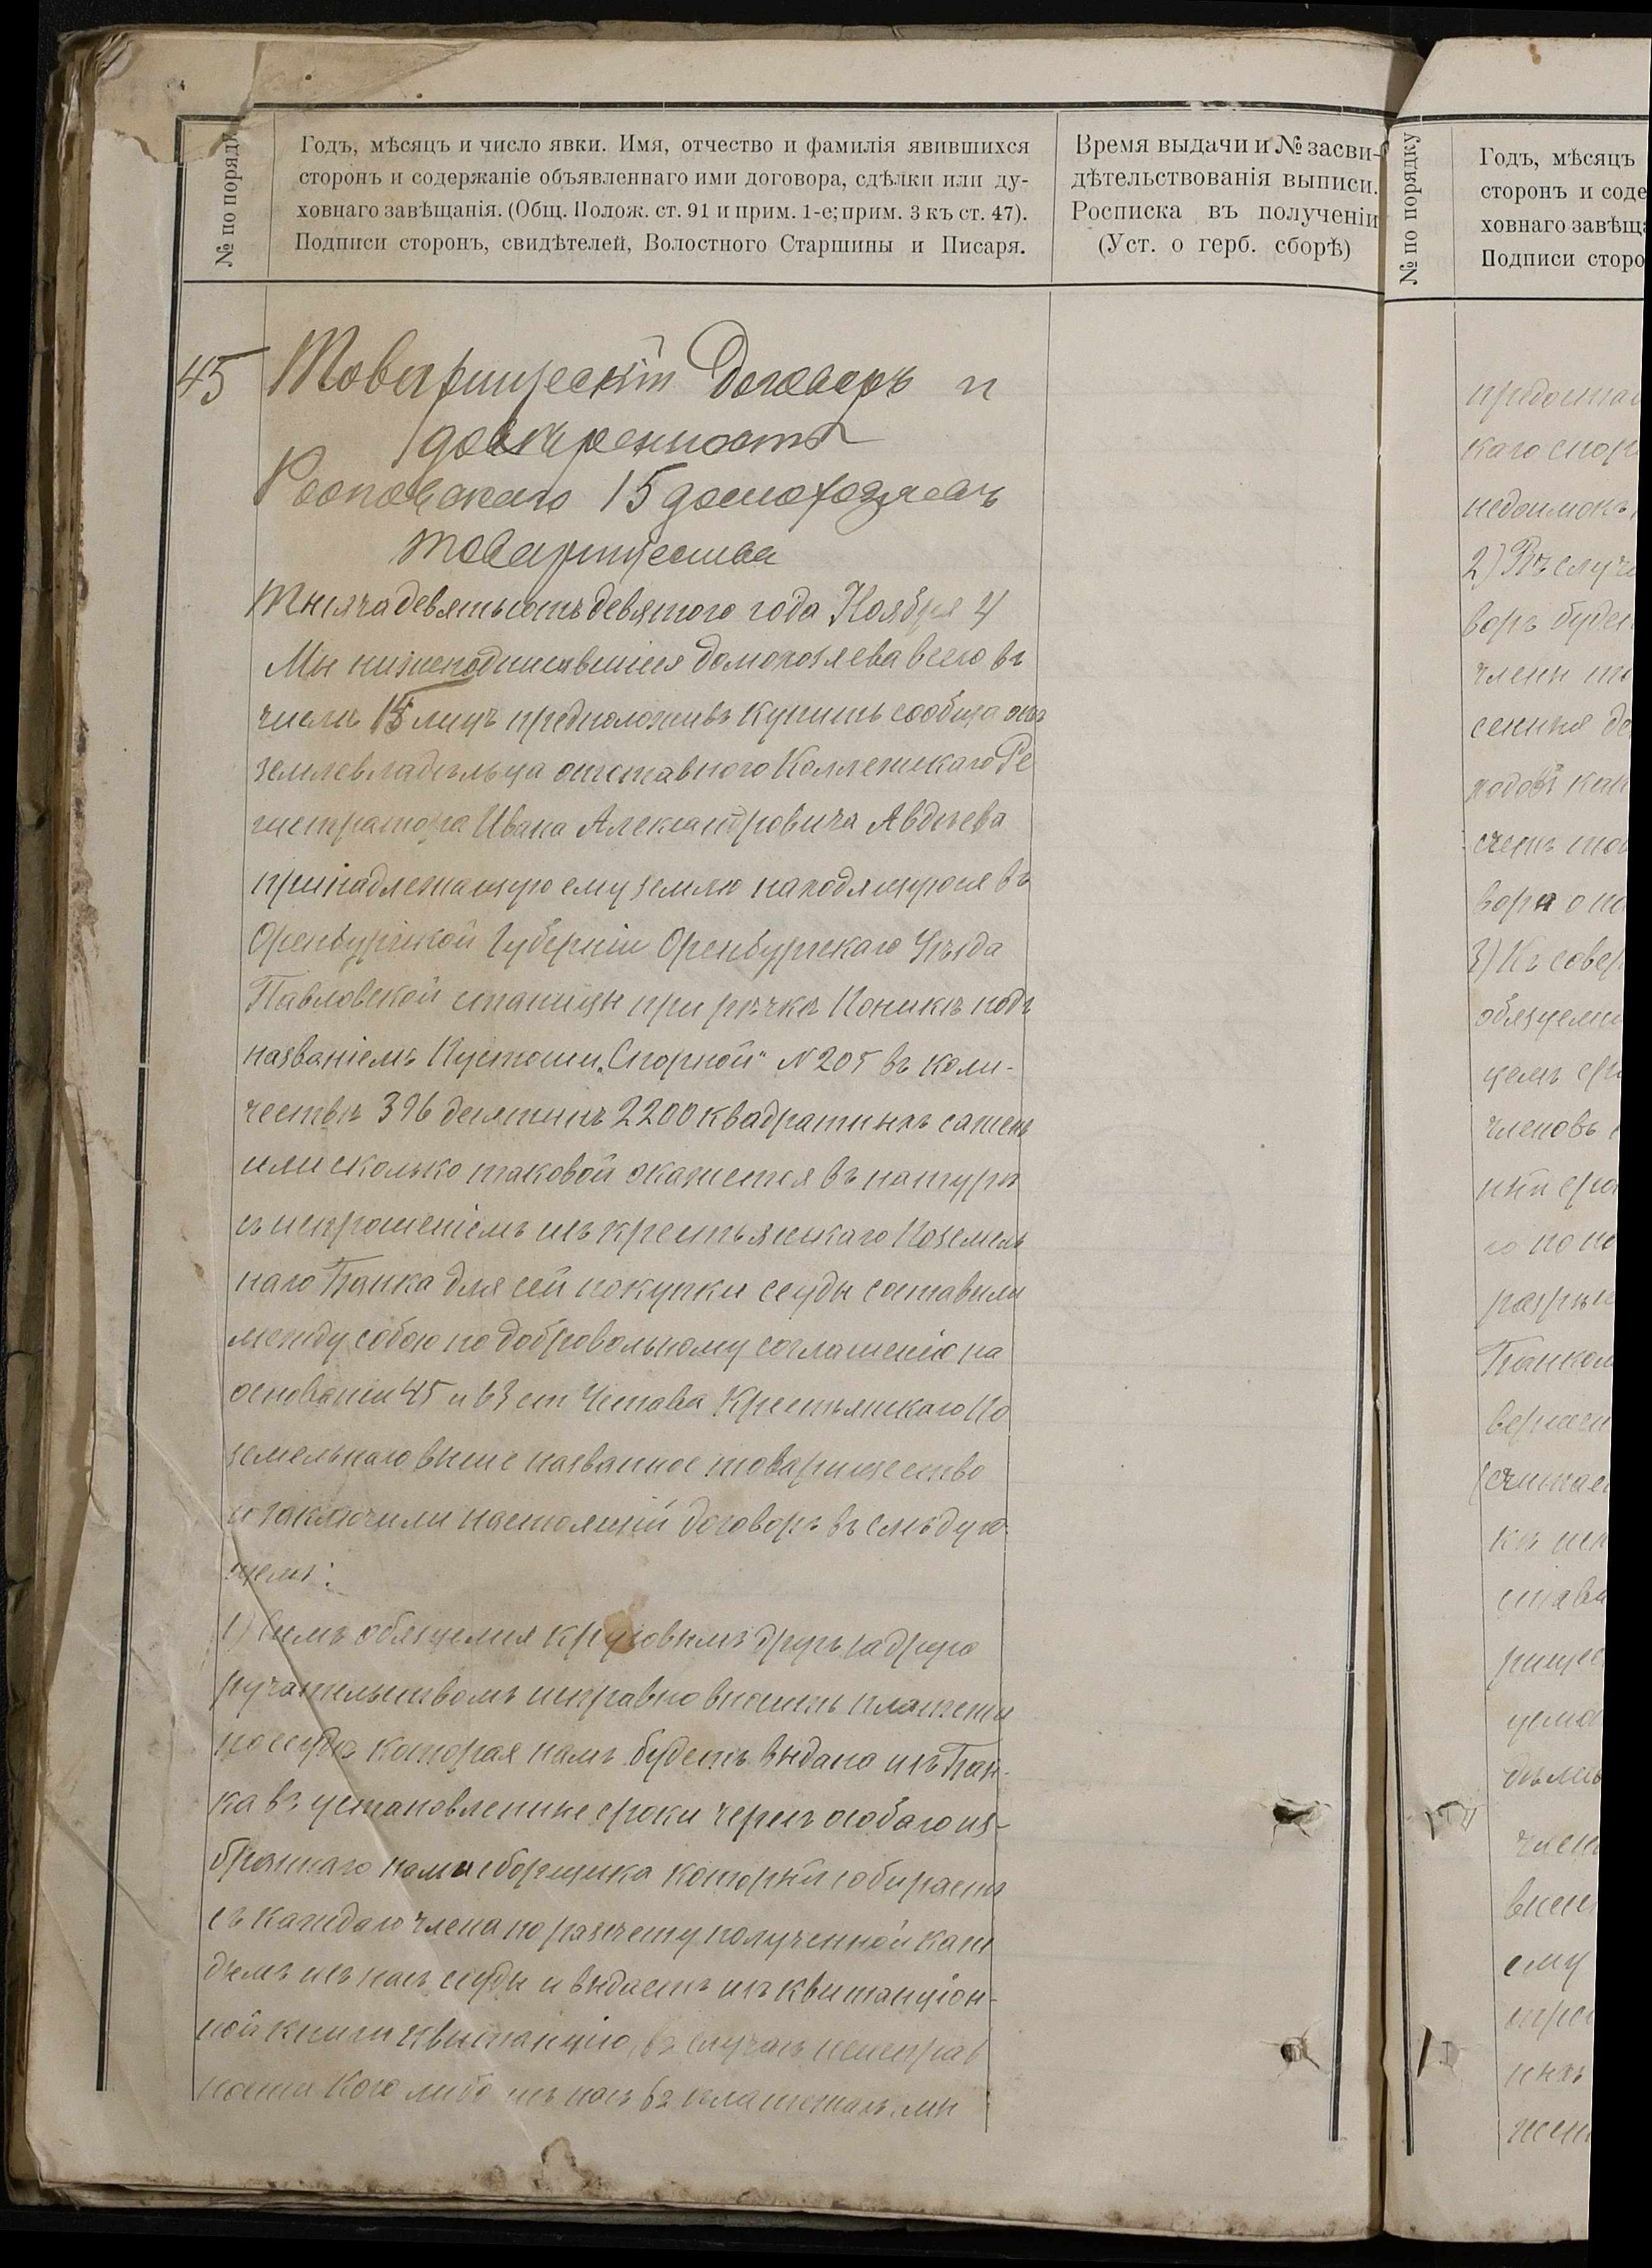 № по порядк
Годъ, мѣсяцъ и число явки. Имя, отчество и фамилія явившихся
сторонъ и содержаніе объявленнаго ими договора, сдѣлки или ду-
ховнаго завѣщанія. (Общ. Полож. ст. 91 и прим. 1-е; прим. 3 къ ст. 47).
Подписи сторонъ, свидѣтелей, Волостного Старшины и Писаря.
Время выдачи и № засви-
дѣтельствованія выписи.
Росписка въ полученіи
(Уст. о герб. сборѣ)
45
Товарищескій Договоръ и
довѣренность
15 домохозяевъ
товарищества
Тысяча девятьсотъ девятого года Ноября 4
Мы нижеподписавшіеся домохозяева всего въ
числѣ 15 лицъ предположивъ купить сообща отъ
землевладѣльца отставного Коллежскаго Ре
гистратора Ивана Александровича Авдѣева
принадлежащую ему землю находящуюся въ
Оренбургской Губерніи Оренбургскаго Уѣзда
Павловской станицы при рѣчкѣ подъ
названіемъ Пустоши „Спорной" N 205 въ коли-
чествѣ 396 десятинъ 2200 квадратныхъ сажень
или сколько таковой окажется въ натурѣ
съ испрошеніемъ изъ крестьянскаго Поземель
наго Банка для сей покупки ссуды составили
между собою по добровольному соглашенію на
основаніи 45 и 63 ст Устава Крестьянскаго По
земельнаго выше названное товарищество
и заключили настоящій договоръ въ слѣдую
щемъ:
1) Симъ обязуемся круговымъ другъ за друга
ручательствомъ исправно вносить платежи
по ссудѣ которая намъ будетъ выдана изъ Бан-
ка въ установленные сроки черезъ особаго из-
браннаго нами сборщика который собираетъ
съ каждаго члена по разсчету полученной каж
дымъ изъ насъ ссуды и выдаетъ изъ квитанціон-
ной книги квитанцію, въ случаѣ неисправ
ности кого либо изъ насъ въ платежахъ мы
№ по порядку
Годъ, мѣсяцъ
сторонъ и соде
ховнаго завѣща
Подписи сторо
каго
2) Въ случа
воръ буде
члены то
3) Къ совер
обязуем
членовъ
Банком
считае
ему